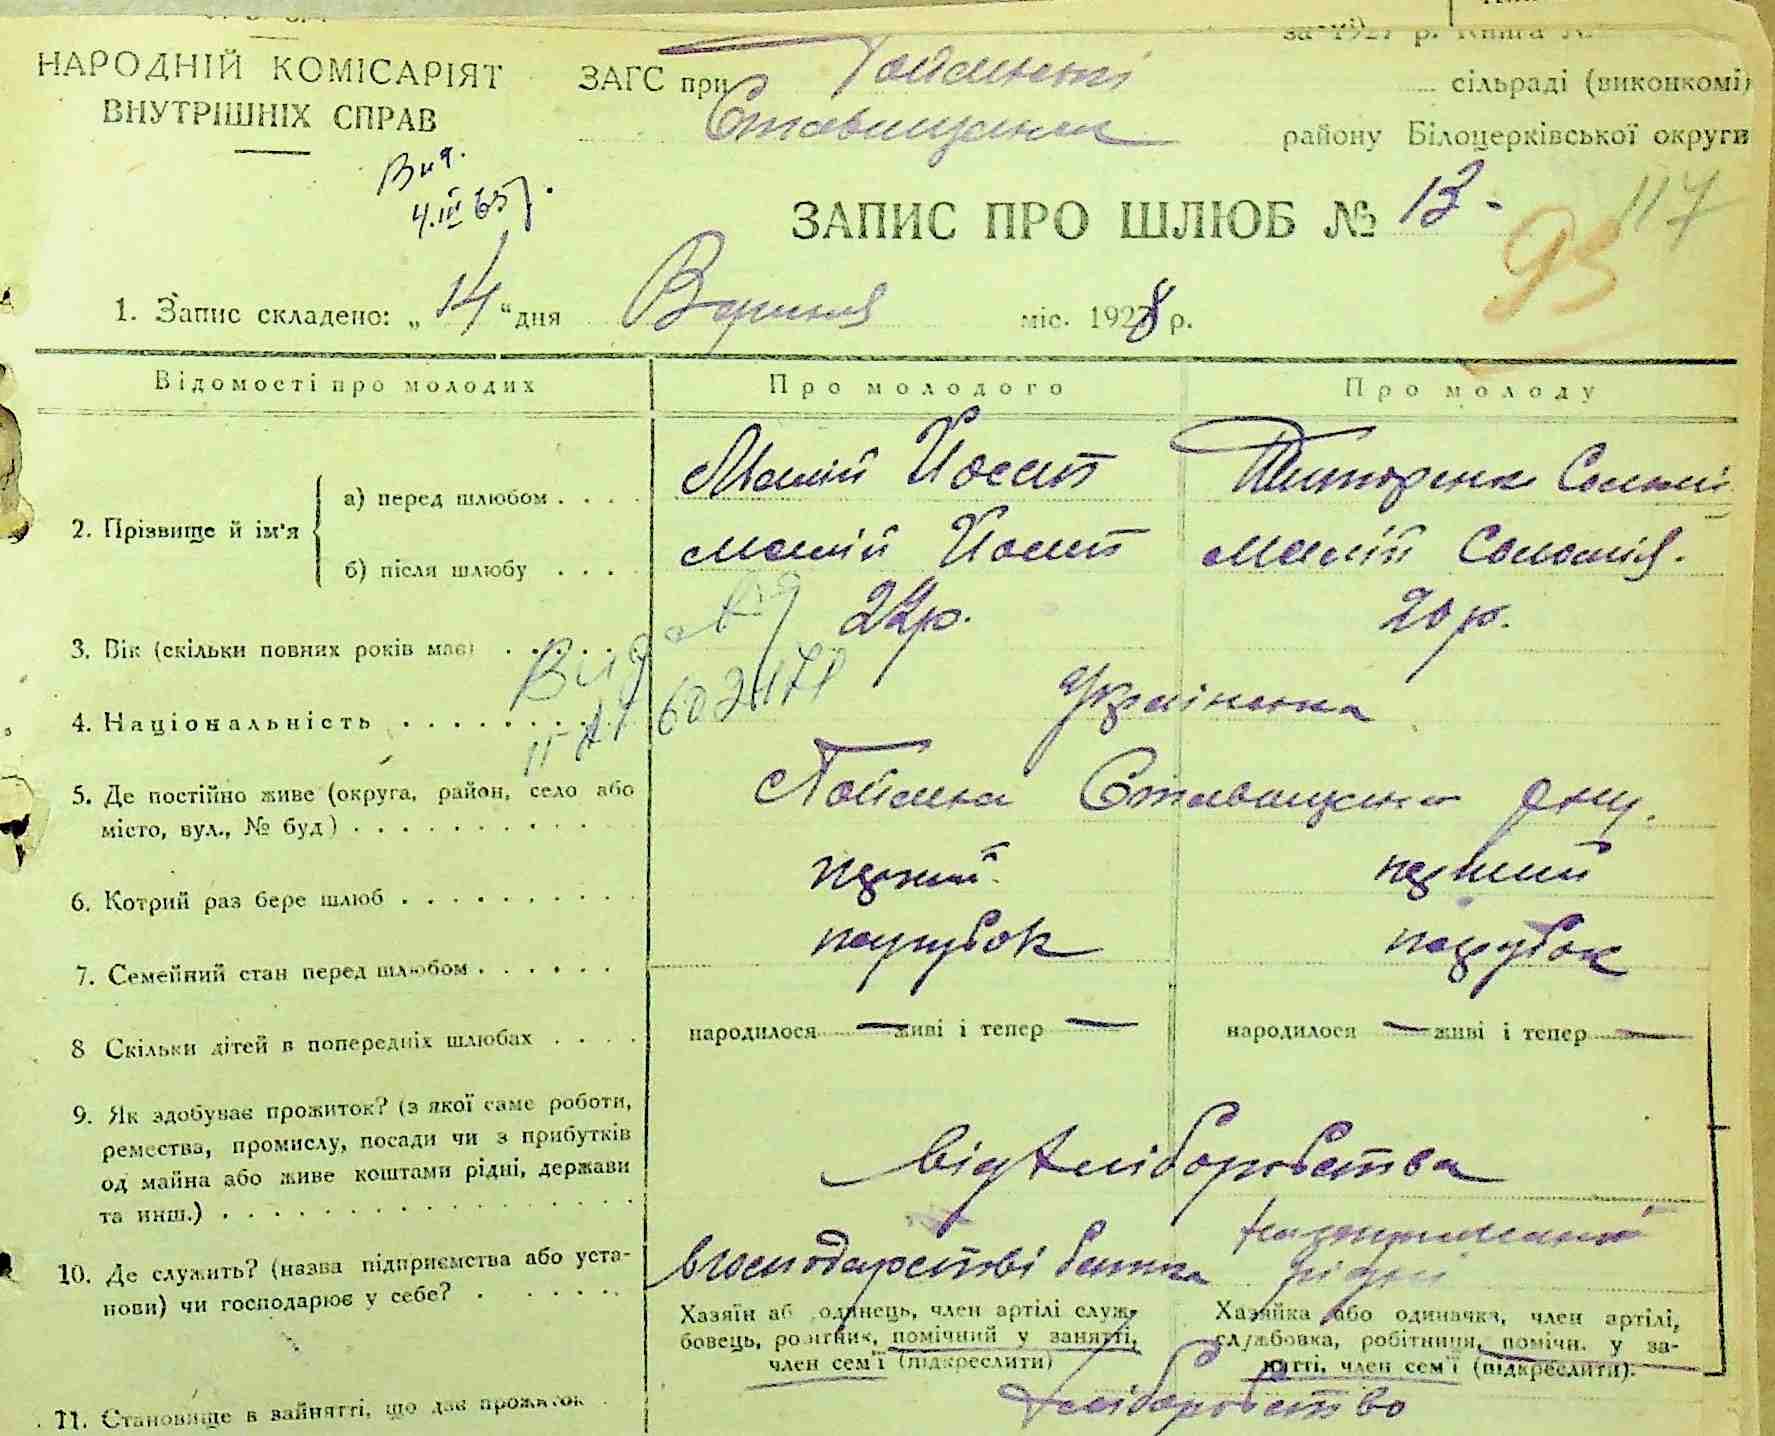 за 1927 р. Книга №
НАРОДНІЙ КОМІСАРІЯТ
ВНУТРІШНІХ СПРАВ
ЗАГС при
сільраді (виконкомі)
району Білоцерківської округи
4.III 65
ЗАПИС ПРО ШЛЮБ № 13-
117
93
1. Запис складено: „14“ дня міс. 1928 р.
Відомості про молодих
Про молодого
Про молоду
2. Прізвище й ім'я
а) перед шлюбом . . . .
Малій Йосип
Титоренко
б) після шлюбу . . . .
Малій Йосип
Малій Соломія.
3. Вік (скільки повних років має)
22р.
20 р.
4. Національність
Українська
5. Де постійно живе (округа, район, село або
місто, вул., № буд)
6. Котрий раз бере шлюб
перший
перший
7. Семейний стан перед шлюбом
парубок
парубок
8 Скільки дітей в попередніх шлюбах . . . .
народилося — живі і тепер —
народилося — живі і тепер —
9. Як здобуває прожиток? (з якої саме роботи,
ремества, промислу, посади чи з прибутків
од майна або живе коштами рідні, держави
та инш.)
від хліборобства
10. Де служить? (назва підприємства або уста-
нови) чи господарює у себе?
в господарстві батька
рідні
Хазяїн або одинець, член артілі служ-
бовець, робітник, помічний у занятті,
член сем'ї (підкреслити)
Хазяйка або одиначка, член артілі,
службовка, робітниця, помічн. у за-
нятті, член сем'ї (підкреслити).
11. Становище в зайнятті, що дає прожиток
хліборобство